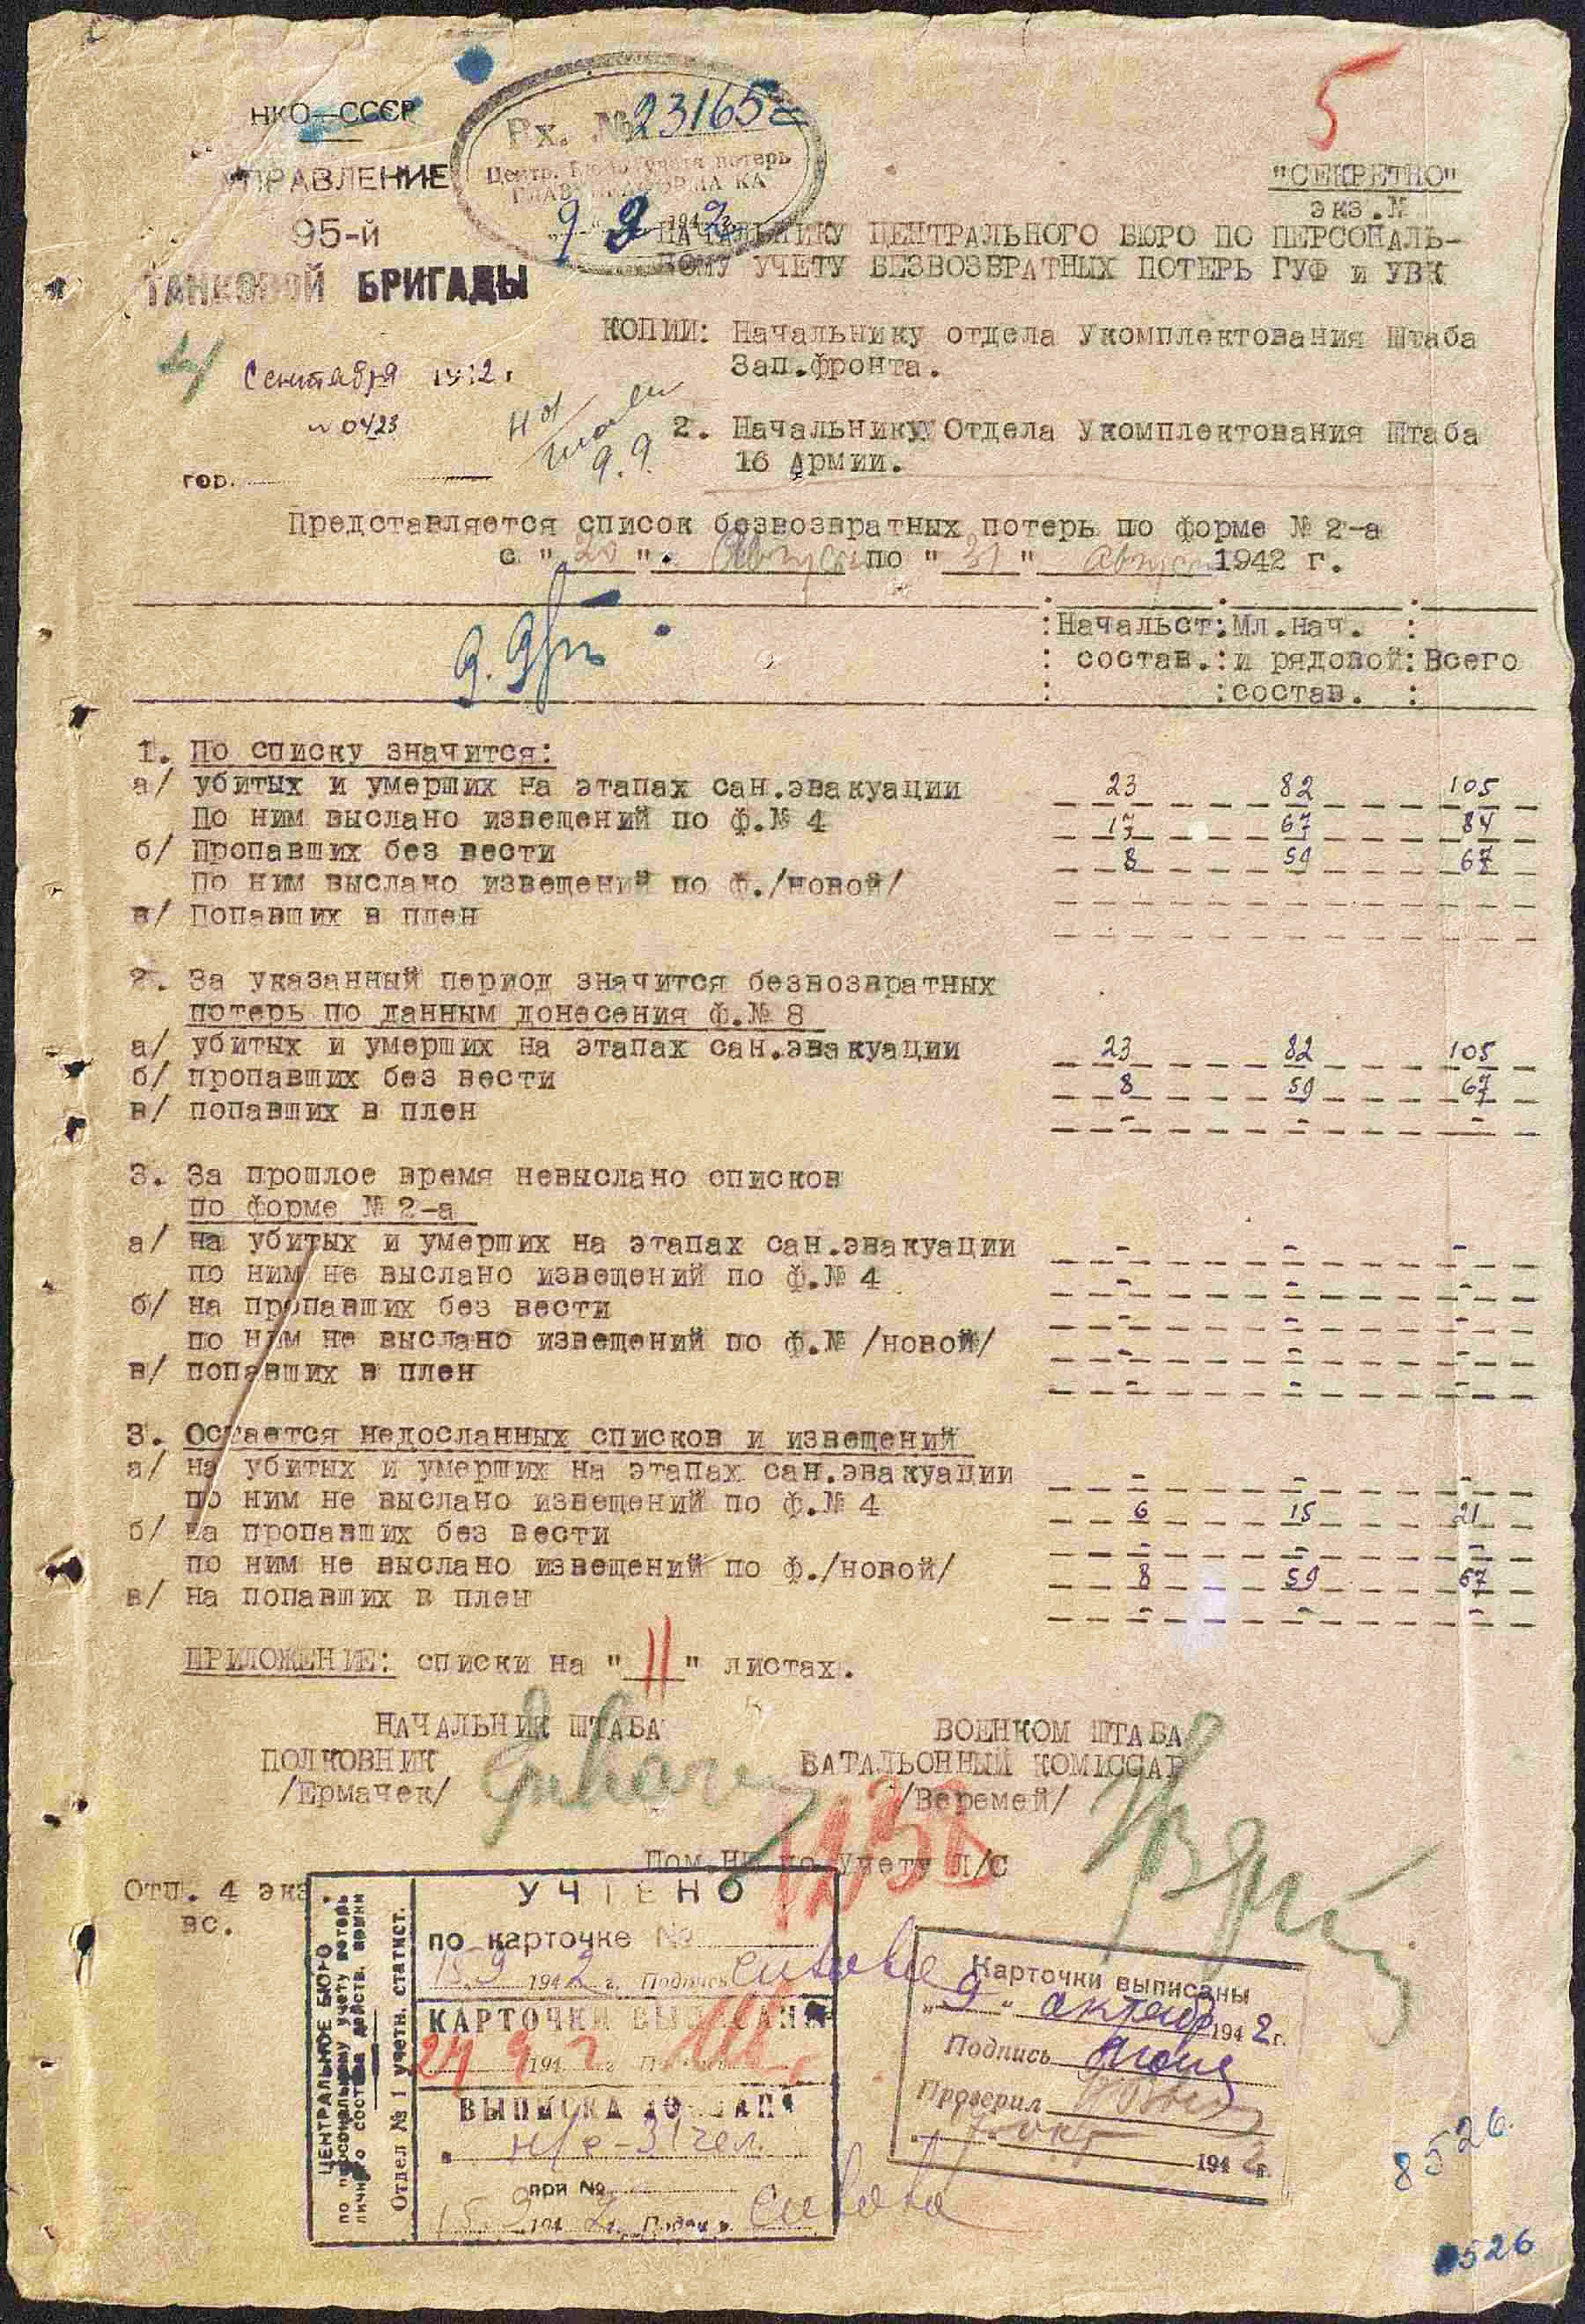 5
НКО—СССР
УПРАВЛЕНИЕ
95-й
ТАНКОВОЙ БРИГАДЫ
Вх. № 23165с
Центр. Бюро учета потерь
КА
9 9 1942 г.
"СЕКРЕТНО"
экз.№
НАЧАЛЬНИКУ ЦЕНТРАЛЬНОГО БЮРО ПО ПЕРСОНАЛЬ-
НОМУ УЧЕТУ БЕЗВОЗВРАТНЫХ ПОТЕРЬ ГУФ и УВК
4 Сентября 1942 г.
№ 0423
гор.
9.9.
КОПИИ: Начальнику отдела Укомплектования Штаба
Зап.фронта.
2. Начальнику Отдела Укомплектования Штаба
16 Армии.
Представляется список безвозвратных потерь по форме № 2-а
с "20". Августа по "31" Августа 1942 г.
:Начальст:Мл.нач. :
: состав.:и рядовой:Всего
: :состав. :
1. По списку значится:
а/ убитых и умерших на этапах сан.эвакуации 23 82 105
По ним выслано извещений по ф.№ 4 17 67 84
б/ Пропавших без вести 8 59 67
По ним выслано извещений по ф./новой/
в/ Попавших в плен
2. За указанный период значится безвозвратных
потерь по данным донесения ф.№ 8
а/ убитых и умерших на этапах сан.эвакуации 23 82 105
б/ пропавших без вести 8 59 67
в/ попавших в плен - - -
3. За прошлое время невыслано списков
по форме № 2-а
а/ на убитых и умерших на этапах сан.эвакуации - - -
по ним не выслано извещений по ф.№ 4 - - -
б/ на пропавших без вести - - -
по ним не выслано извещений по ф.№ /новой/ - - -
в/ попавших в плен - - -
3. Остается недосланных списков и извещений
а/ на убитых и умерших на этапах сан.эвакуации - - -
по ним не выслано извещений по ф.№ 4 6 15 21
б/ на пропавших без вести - - -
по ним не выслано извещений по ф./новой/ 8 59 67
в/ На попавших в плен - - -
ПРИЛОЖЕНИЕ: списки на "11" листах.
НАЧАЛЬНИК ШТАБА
ПОЛКОВНИК
/Ермачек/
ВОЕНКОМ ШТАБА
БАТАЛЬОННЫЙ КОМИССАР
/Веремей/
Пом.НШ по учету Л/С
Отп. 4 экз.
вс.
ЦЕНТРАЛЬНОЕ БЮРО
по персональному учету потерь
личного состава действ. армии
Отдел № 1 учетн. статист.
УЧТЕНО
по карточке №
15 9 1942 г. Подпись
КАРТОЧКИ ВЫПИСАНЫ
24 9 1942 г.
ВЫПИСКА
н/с - 31 чел.
при №
15 9 1942 г. Подпись
Карточки выписаны
"9" октября 1942 г.
Подпись
Проверил
1942 г.
8526.
8526